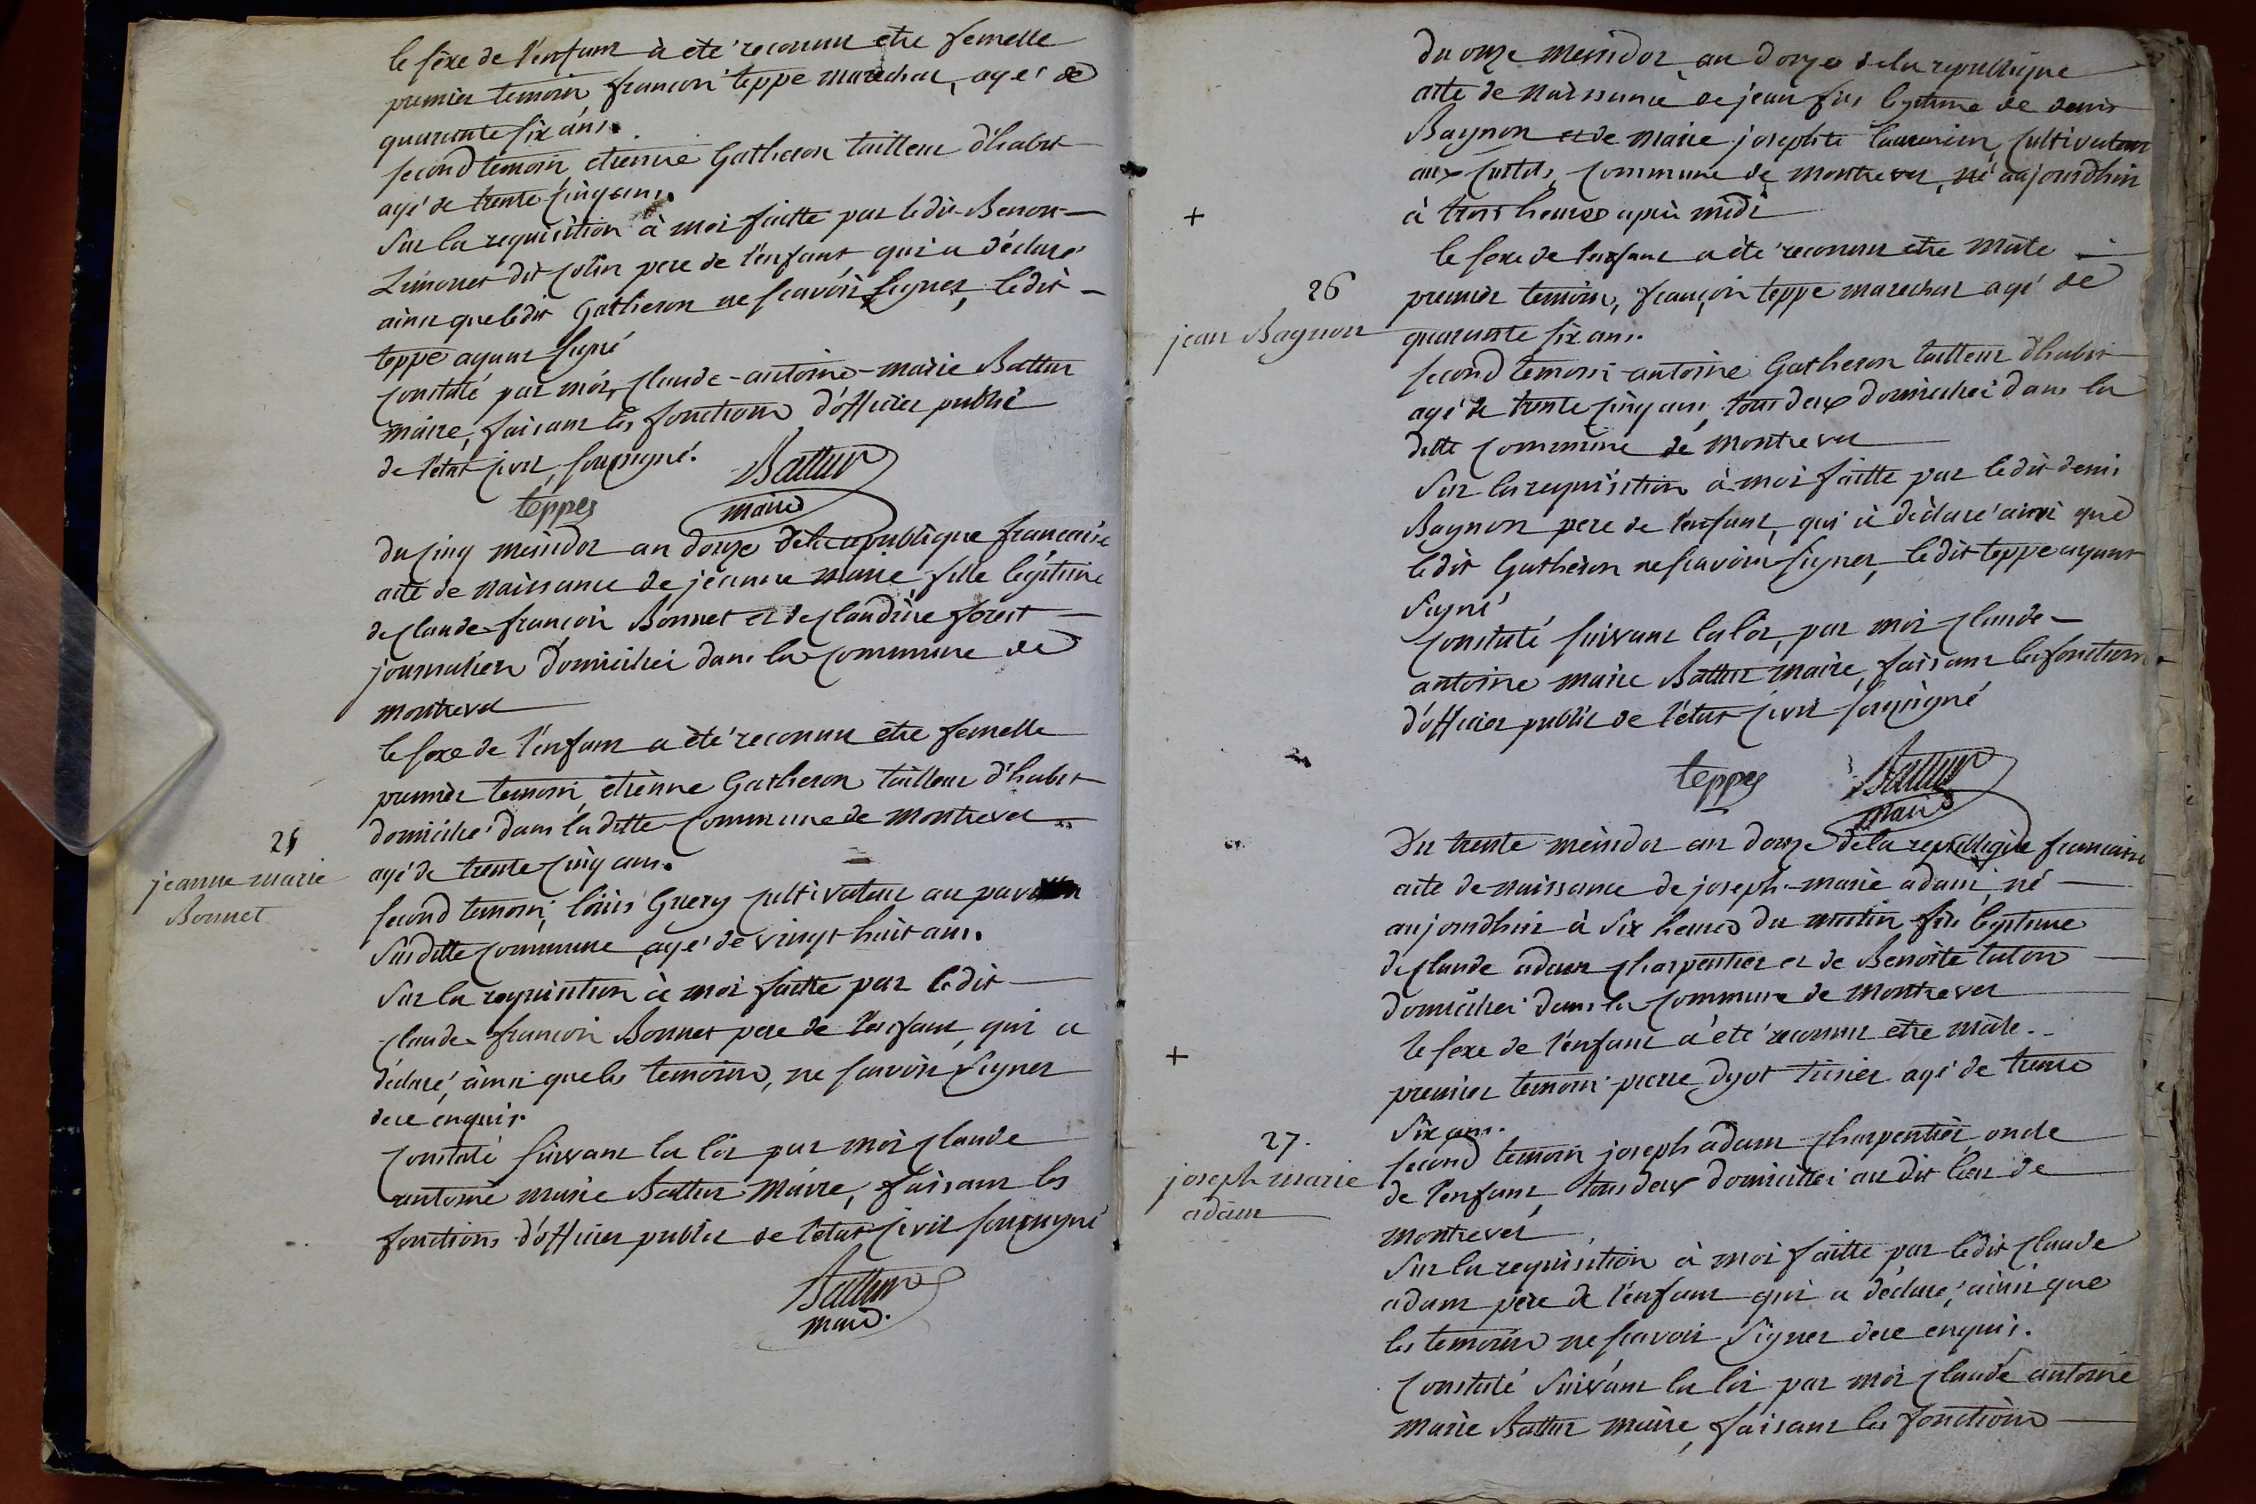 le sexe de l'enfant à eté reconnu etre femelle
premier temoin françois teppe marechal, agé de
quarante six ans.
second temoin etienne Gatheron tailleur d'habit
agé de trente cinq ans.
Sur la requisition à moi faitte par ledit Benoit
Limonet dit colin pere de l'enfant qui a déclaré
ainsi que ledit Gatheron ne scavoir signer, ledit
teppe ayant signé
constaté par moi, claude-antoine-marie Battur
maire, faisant les fonctions d'officier public
de l'état civil soussigné.
teppes Battur
maire
du cinq messidor an douze de la republique francaise
acte de naissance de jeanne marie fille legitime
de claude françois Bonnet et de claudine forest
journalier domiciliés dans la commune de
montrevel
le sexe de l'enfant a été reconnu etre femelle
premier temoin etienne Gatheron tailleur d'habit
domicilié dans la ditte commune de montrevel
agé de trente cinq ans.
25
jeanne marie
Bonnet
second temoin louis Guery cultivateur au
susditte commune agé de vingt huit ans.
Sur la requisition à moi faitte par ledit
claude françois Bonnet pere de l'enfant, qui a
déclaré, ainsi que les temoins, ne scavoir signer
de ce enquis.
constaté suivant la loi par moi claude
antoine marie Battur maire, faisant les
fonctions d'officier public de l'état civil soussigné
Battur
maire.
du onze messidor an douze de la republique
acte de naissance de jean fils legitime de denis
Bagnon et de marie josephte laurencin, cultivateur
aux curtils, commune de montrevel, né aujourdhui
à trois heures après midi
le sexe de l'enfant a été reconnu etre mâle
26
jean Bagnon
premier temoin, françois teppe marechal agé de
quarante six ans.
second temoin antoine Gatheron tailleur d'habit
agé de trente cinq ans, tous deux domiciliés dans la
ditte commune de montrevel
Sur la requisition à moi faitte par ledit denis
Bagnon pere de l'enfant, qui à déclaré ainsi que
ledit Gatheron ne scavoir signer, ledit teppe ayant
signé
constaté suivant la loi, par moi claude
antoine marie Battur maire, faisant les fonctions
d'officier public de l'état civil soussigné
teppes Battur
maire
Du trente messidor an douze de la republique francaise
acte de naissance de joseph-marie adam, né
aujourdhui à six heures du matin fils legitime
de claude adam charpentier et de Benoite tuton
domiciliés dans la commune de montrevel
le sexe de l'enfant a été reconnu etre mâle.
premier temoin pierre dyot agé de trente
six ans.
27.
joseph marie
adam
second temoin joseph adam charpentier, oncle
de l'enfant, tous deux domiciliés au dit lieu de
montrevel
Sur la requisition à moi faitte par ledit claude
adam père de l'enfant qui a déclaré, ainsi que
les temoins ne scavoir signer de ce enquis.
constaté suivant la loi par moi claude antoine
marie Battur maire, faisant les fonctions